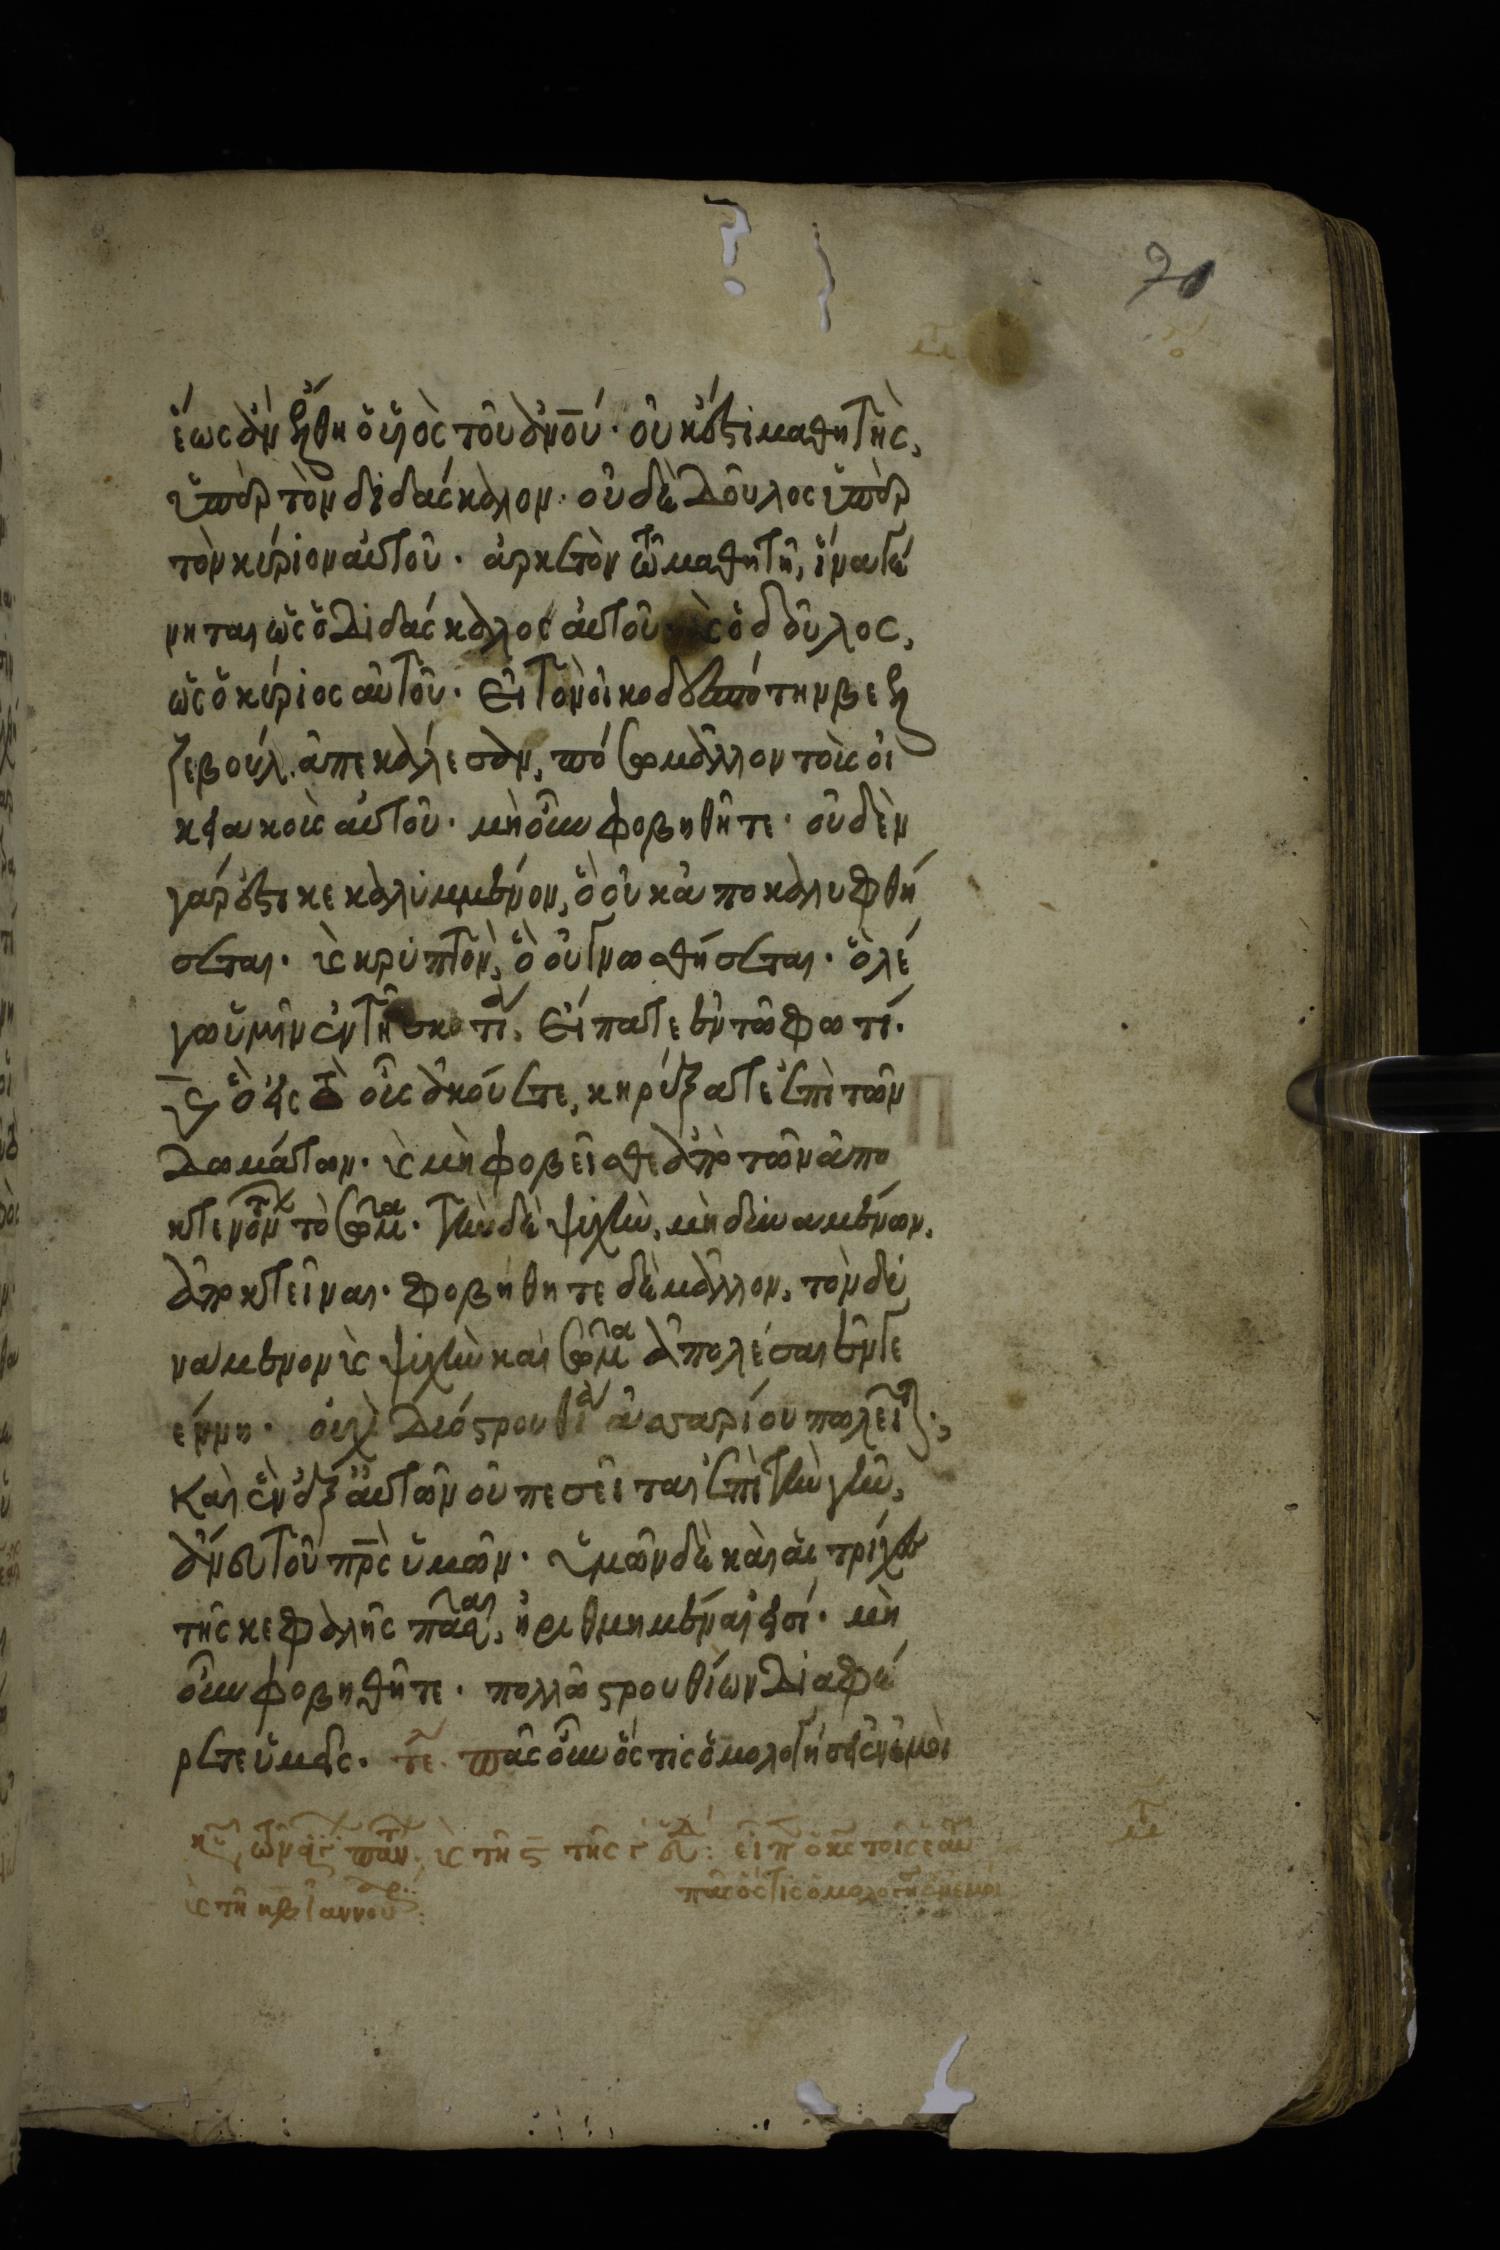 20
ἕως ἂν ἔλθη ὁ υἱὸς τοῦ ἀνου· οὐκ ἔστι μαθητὴς,
ὑπὲρ τὸν διδάσκαλον· οὐδὲ δοῦλος ὑπὲρ
τὸν κύριον αὐτοῦ· ἀρκετὸν τῶ μαθητῆ, ἵνα γέ
νηται ὡς ὁ διδάσκαλος αὐτοῦ ὁ δοῦλος,
ὡς ὁ κύριος αὐτοῦ· εἰ τὸν οἰκοδεσπότην βεελ
ζεβοὺλ ἀπεκάλεσαν, πόσω μᾶλλον τοὺς οἰ
κειακοὺς αὐτοῦ· μὴ οὖν φοβηθῆτε· οὐδὲν
γάρ ἐστι κεκαλυμμένον, ὃ οὐκ ἀποκαλυφθή
σεται· καὶ κρυπτὸν, ὃ οὐ γνωσθήσεται· ὃ λέ
γω ὑμῖν ἐν τῆ σκοτία, εἴπατε ἐν τῶ φωτί·
καὶ ὃ εἰς τὸ οὖς ἀκούετε, κηρύξατε ἐπὶ τῶν
δωμάτων· καὶ μὴ φοβεῖσθε ἀπὸ τῶν ἀπο
κτενόντ τὸ σῶμα· τὴν δὲ ψυχὴν, μὴ δυναμένων,
ἀποκτεῖναι· φοβήθητε δὲ μᾶλλον, τὸν δυ
νάμενον καὶ ψυχὴν καὶ σῶμα ἀπολέσαι ἐν γε
έννη· οὐχὶ δύο στρουθία ἀσσαρίου πωλεῖται;
καὶ ἓν ἐξ αὐτῶν οὐ πεσεῖται ἐπὶ τὴν γῆν,
ἄνευ τοῦ πρς ὑμῶν· ὑμῶν δὲ καὶ αἱ τρίχες
τῆς κεφαλῆς πᾶσαι, ἠριθμημέναι εἰσί· μὴ
οὖν φοβηθῆτε· πολλῶ στρουθίων διαφέ
ρετε ὑμεῖς· τε πᾶς οὖν ὅστις ὁμολογήσει ἐν ἐμοὶ
πᾶς ὅστις ὁμολογήσει ἐν ἐμοὶ